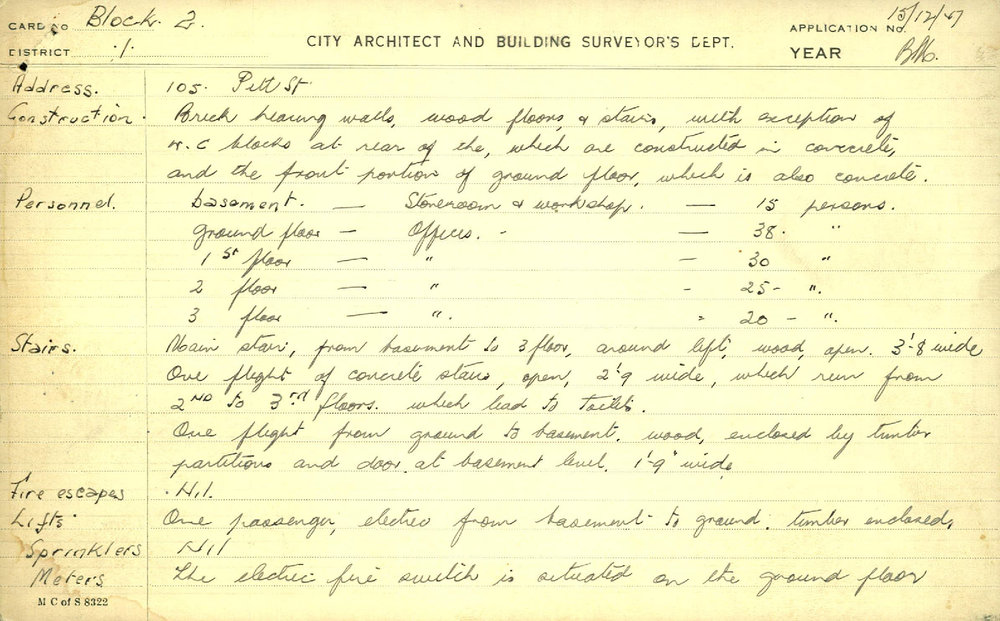 CARD No Block. 2.
15/12/47
APPLICATION No.
DISTRICT 1.
CITY ARCHITECT AND BUILDING SURVEYOR'S DEPT.
YEAR
Address. 105. Pitt St
Construction. Brick bearing walls, wood floors, & stairs, with exception of
w.c blocks at rear of the, which are constructed in concrete,
and the front portion of ground floor, which is also concrete.
Personnel. basement. — Storeroom & workshop. — 15 persons.
ground floor — Offices. - — 38. "
1st floor — " - 30 "
2 floor — " - 25 - ".
3 floor — ". - 20 - ".
Stairs. Main stair, from basement to 3 floor, around lift, wood, open. 3'-8 wide
One flight of concrete stairs, open, 2'9 wide, which run from
2ND to 3rd floors. which lead to toilets.
One flight from ground to basement. wood, enclosed by timber
partitions and door. at basement level. 1'-9" wide.
Fire escapes . Nil.
Lifts. One passenger, electric from basement to ground. timber enclosed,
Sprinklers Nil
Meters The electric fire switch is situated on the ground floor
M C of S 8322